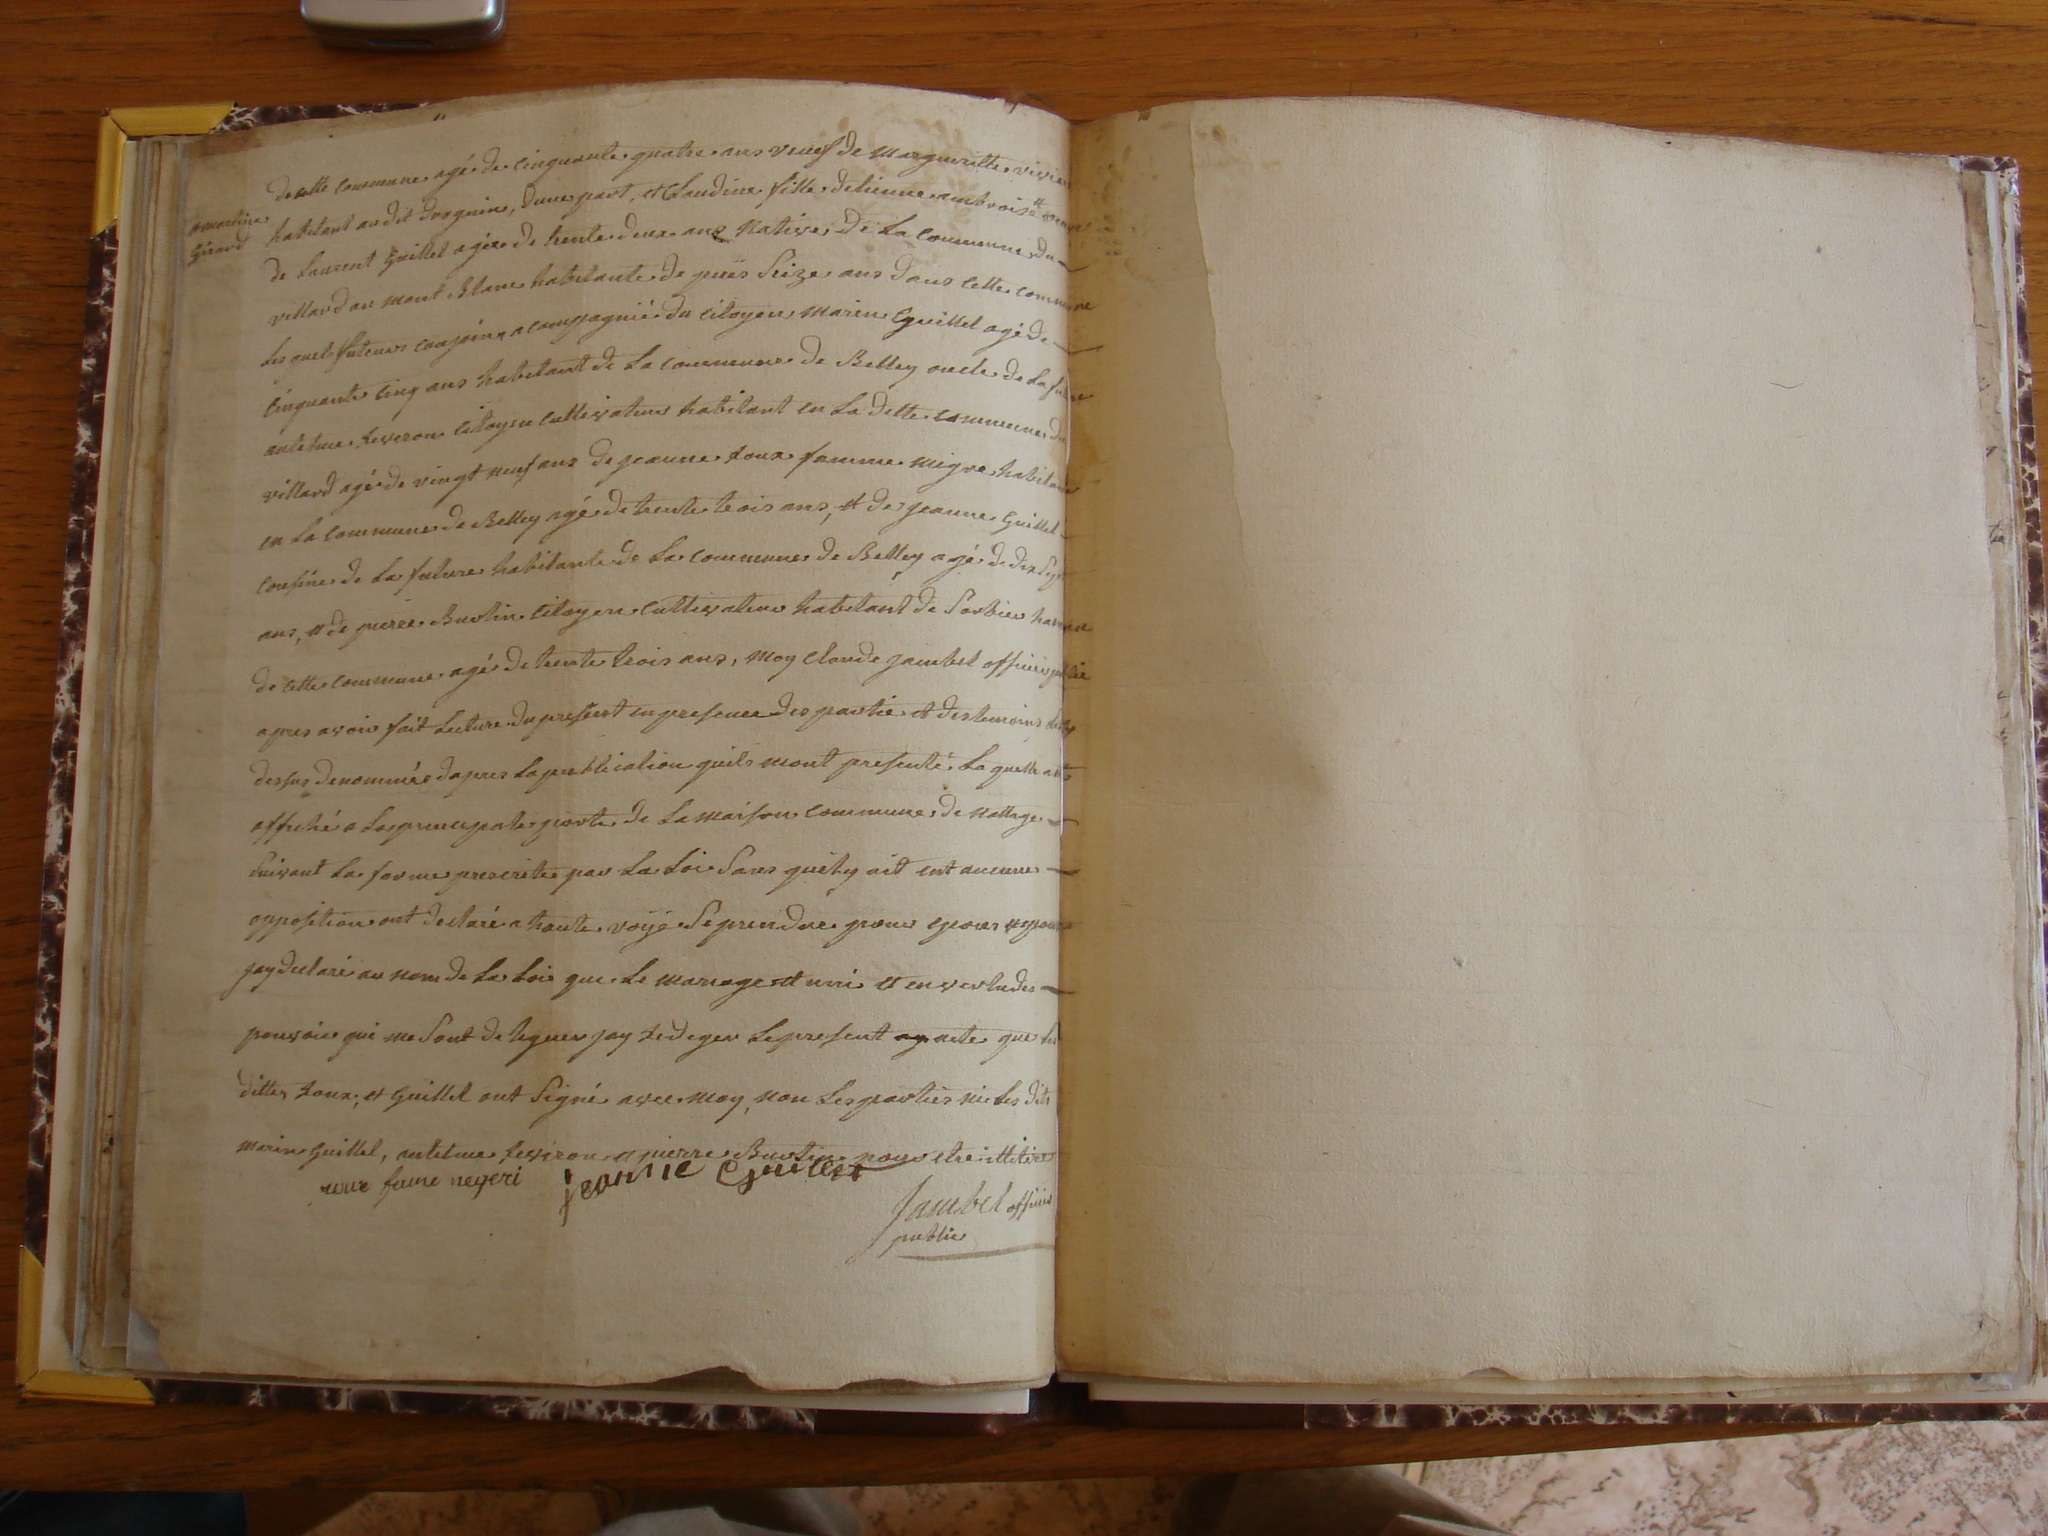 de cette commune agé de cinquante quatre ans veuf de margueritte
habitant audit dragnin, dune part, et Claudine fille detienne ambroise et
a martine
Gérard
de Laurent Guillet agée de trente deux ans Native De La Commune du
villard au mont Blanc habitante de puis Seize ans dans cette commune
Les quels futeurs conjoins acompagnié du Citoyen marin Guillet agé de
Cinquante Cinq ans habitant de La commune de Belley oncle de La future
antelme citoyen cultivateur habitant en La ditte commune du
villard agé de vingt neuf ans de jeanne Roux famme migre habitante
en La commune de Belley agé de trente trois ans, et de jeanne Guillet
Cousine de La future habitante de La commune de Belley agé de dix
ans, et de pierre Burtin Citoyen Cultivateur habitant de Sorbier hameau
de cette commune agé de trente trois ans, moy Claude jambel officier public
apres avoir fait Lecture du present en presence des partie et des temoins
dessus denommés dapres La publication quils mont presenté La quelle
affiché a La principale porte de La maison commune de Nattage
Suivant La forme prescrite par La Loi Sans quil y ait eut aucune
opposition ont declaré a haute voye Se prendre pour epoux
jay declaré au nom de La Loi que Le mariage et uni et en vertu des
pouvoir qui me Sont deleguer jay rediger Le present acte que Les
dittes Roux, et Guillet ont Signé avec moy, non Les parties ni Les dits
marin Guillet, antelme et pierre Burtin pour etre illitire
fame negeri jeanne Guillet
Jambel officier
public